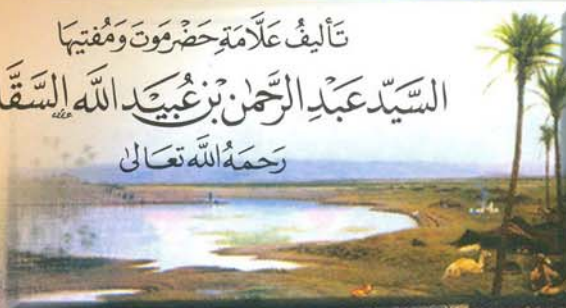 تَأليفُ عَلَّامَةِ حَضْرَمَوتَ وَمُفتِيهَا
السَّيِّد عَبْدِ الرَّحمٰن بْن عُبَيْد الله
رَحمَهُ اللهُ تعَالىٰ